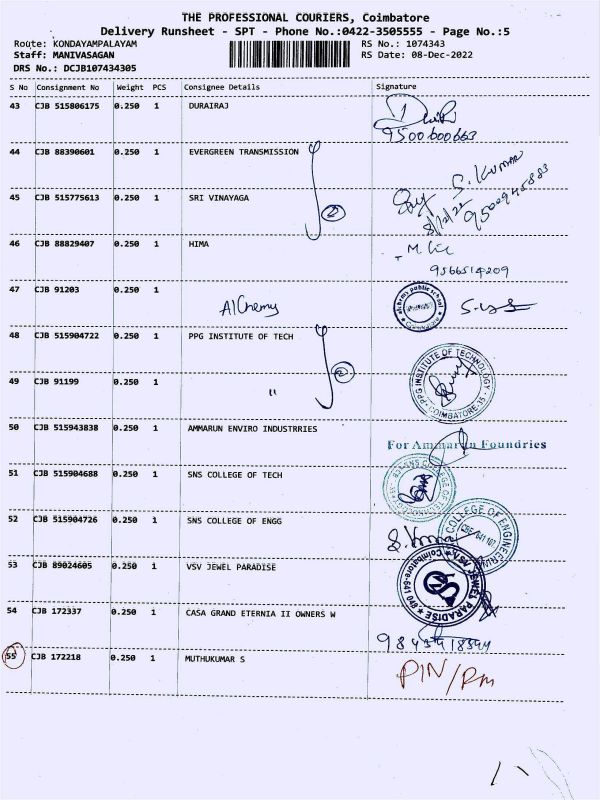 THE PROFESSIONAL COURIERS, Coimbatore
Delivery Runsheet - SPT - Phone No.:0422-3505555 - Page No.:5
Route: KONDAYAMPALAYAM RS No.: 1074343
Staff: MANIVASAGAN RS Date: 08-Dec-2022
DRS No.: DCJB107434305
S No Consignment No Weight PCS Consignee Details Signature
43 CJB 515806175 0.250 1 DURAIRAJ
9500600663
44 CJB 88390601 0.250 1 EVERGREEN TRANSMISSION
S. KUMAR
45 CJB 515775613 0.250 1 SRI VINAYAGA
2
8/12/22 9500945883
46 CJB 88829407 0.250 1 HIMA
9566514209
47 CJB 91203 0.250 1
Alchemy
alchemy public school
Coimbatore
48 CJB 515904722 0.250 1 PPG INSTITUTE OF TECH
2
PPG INSTITUTE OF TECHNOLOGY
COIMBATORE-35
49 CJB 91199 0.250 1 "
50 CJB 515943838 0.250 1 AMMARUN ENVIRO INDUSTRRIES
For Ammarun Foundries
51 CJB 515904688 0.250 1 SNS COLLEGE OF TECH
52 CJB 515904726 0.250 1 SNS COLLEGE OF ENGG
COLLEGE OF ENGINEERING
CBE-641 107
53 CJB 89024605 0.250 1 VSV JEWEL PARADISE
JEWEL PARADISE
Coimbatore-641
54 CJB 172337 0.250 1 CASA GRAND ETERNIA II OWNERS W
55 CJB 172218 0.250 1 MUTHUKUMAR S
PIN/RM